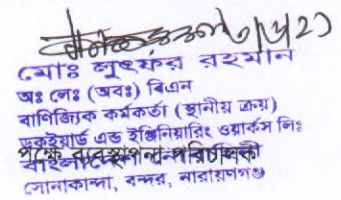 মোঃ লুৎফর রহমান
অঃ লেঃ (অবঃ) বিএন
বাণিজ্যিক কর্মকর্তা (স্থানীয় ক্রয়)
ডকইয়ার্ড এন্ড ইঞ্জিনিয়ারিং ওয়ার্কস লিঃ
পক্ষে ব্যবস্থাপনা পরিচালক
সোনাকান্দা, বন্দর, নারায়ণগঞ্জ